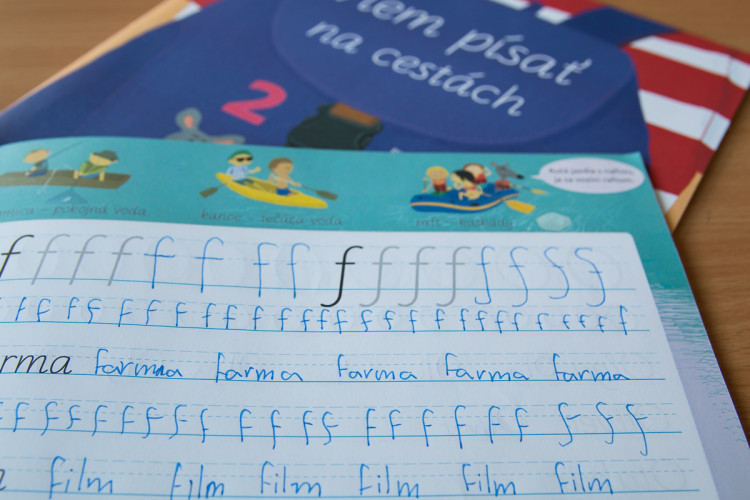 iem písať
na cestách
2
pokojná voda
kanoe – tečúca voda
raft – kaskáda
f f f f f f f f f f f f f f f f
f f f f f f f f f f f f f f f f f f f f f f f f f f f
rma farmna farma farma farma farma
f f f f f f f f f f f f f f f f f f f f f f
film film film film film film